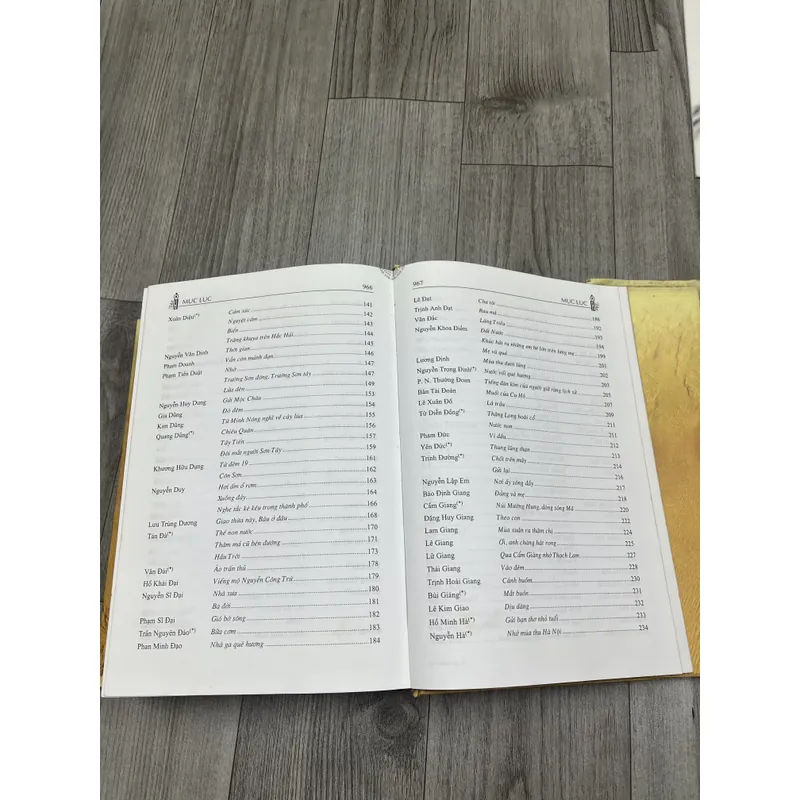 966
MỤC LỤC
Xuân Diệu(*) Cảm xúc 141
Nguyệt cầm 142
Biển 143
Trăng khuya trên Hắc Hải 144
Thời gian 145
Nguyễn Văn Dinh Vẫn còn mảnh đạn 146
Phạm Doanh Nhớ 147
Phạm Tiến Duật Trường Sơn đông, Trường Sơn tây 147
Lửa đèn
Nguyễn Huy Dung Gửi Mộc Châu
Gia Dũng Đò đêm
Ken Dũng Từ Minh Nông nghĩ về cây lúa 155
Quang Dũng(*) Chiêu Quân 156
Tây Tiến 157
Đôi mắt người Sơn Tây 159
Khương Hữu Dụng Từ đêm 19 161
Côn Sơn 162
Nguyễn Duy Hơi ấm ổ rơm 163
Xuồng đầy 164
Nghe tắc kè kêu trong thành phố 166
Lưu Trùng Dương Giao thừa này, Bác ở đâu 168
Tản Đà(*) Thề non nước 170
Thăm mả cũ bên đường 171
Hầu Trời 173
Văn Đài(*) Áo trấn thủ 178
Hồ Khải Đại Viếng mộ Nguyễn Công Trứ 179
Nguyễn Sĩ Đại Nhà xưa 180
Bà đời 181
Phạm Sĩ Đại Gió bờ sông 182
Trần Nguyên Đào(*) Bữa cơm 183
Phan Minh Đạo Nhà ga quê hương 184
967
MỤC LỤC
Lê Đạt Cha tôi
Trịnh Anh Đạt Rau má
Văn Đắc Làng Triều 192
Nguyễn Khoa Điềm Đất Nước 193
Khúc hát ru những em bé lớn trên lưng mẹ
Mẹ và quả 199
Lương Định Mùa thu dưới làng 200
Nguyễn Trọng Định(*) Nước với quê hương 202
P. N. Thường Đoan Tiếng đàn kìm của người giữ rừng lịch sử 203
Bàn Tài Đoàn Muối của Cụ Hồ 205
Lê Xuân Đố Lá trầu 207
Từ Diễn Đồng(*) Thăng Long hoài cổ 209
Nước non 211
Phạm Đức Ví dầu 211
Yên Đức(*) Thung lũng than 212
Trinh Đường(*) Chốt trên mây 214
Gửi lại 216
Nguyễn Lập Em Nơi ấy sông đầy 217
Bảo Định Giang Đảng và mẹ 218
Cầm Giang(*) Núi Mường Hung, dòng sông Mã 220
Đặng Huy Giang Theo con 224
Lam Giang Mùa xuân ra thăm chị 224
Lê Giang Ơi, anh chàng hát rong 225
Lữ Giang Qua Cẩm Giàng nhớ Thạch Lam 227
Thái Giang Vào đêm 228
Trịnh Hoài Giang Cánh buồm 230
Bùi Giáng(*) Mắt buồn 231
Lê Kim Giao Dịu dàng 232
Hồ Minh Hà(*) Gửi bạn thơ nhỏ tuổi 233
Nguyễn Hà(*) Nhớ mùa thu Hà Nội 234